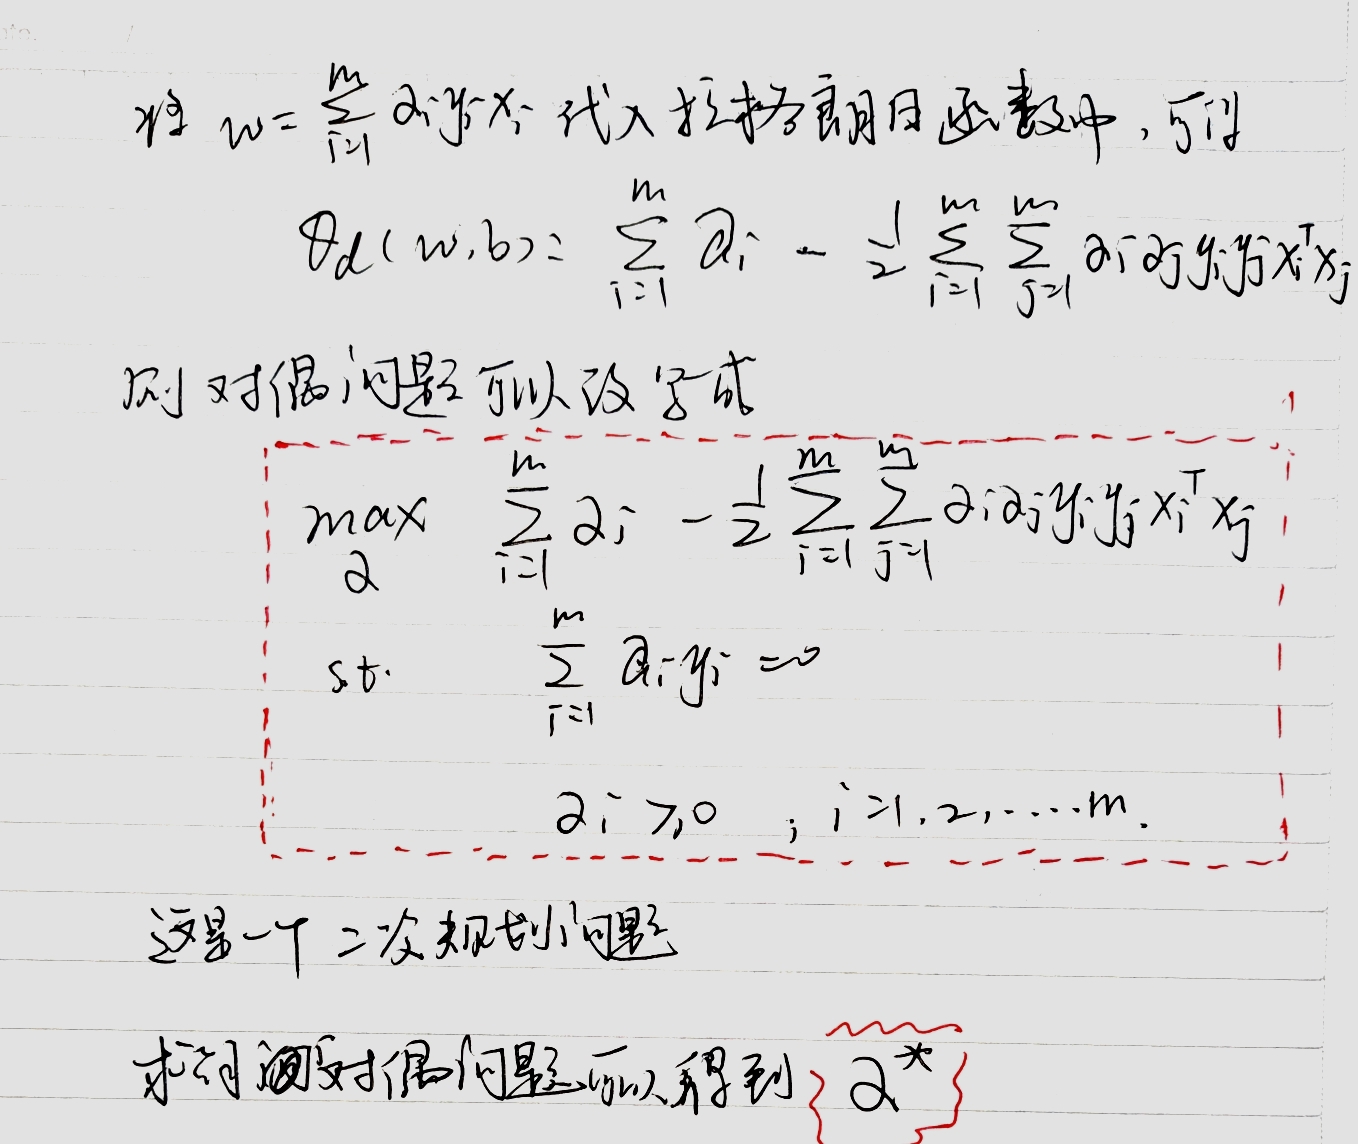 将 w = ∑_{i=1}^{m} α_i y_i x_i 代入拉格朗日函数中,可得
θ_d(w,b) = ∑_{i=1}^{m} α_i - 1/2 ∑_{i=1}^{m} ∑_{j=1}^{m} α_i α_j y_i y_j x_i^T x_j
则对偶问题可以改写成
max_α ∑_{i=1}^{m} α_i - 1/2 ∑_{i=1}^{m} ∑_{j=1}^{m} α_i α_j y_i y_j x_i^T x_j
s.t. ∑_{i=1}^{m} α_i y_i = 0
α_i ≥ 0 , i = 1, 2, ..... m.
这是一个二次规划问题
求解对偶问题可以得到 α*